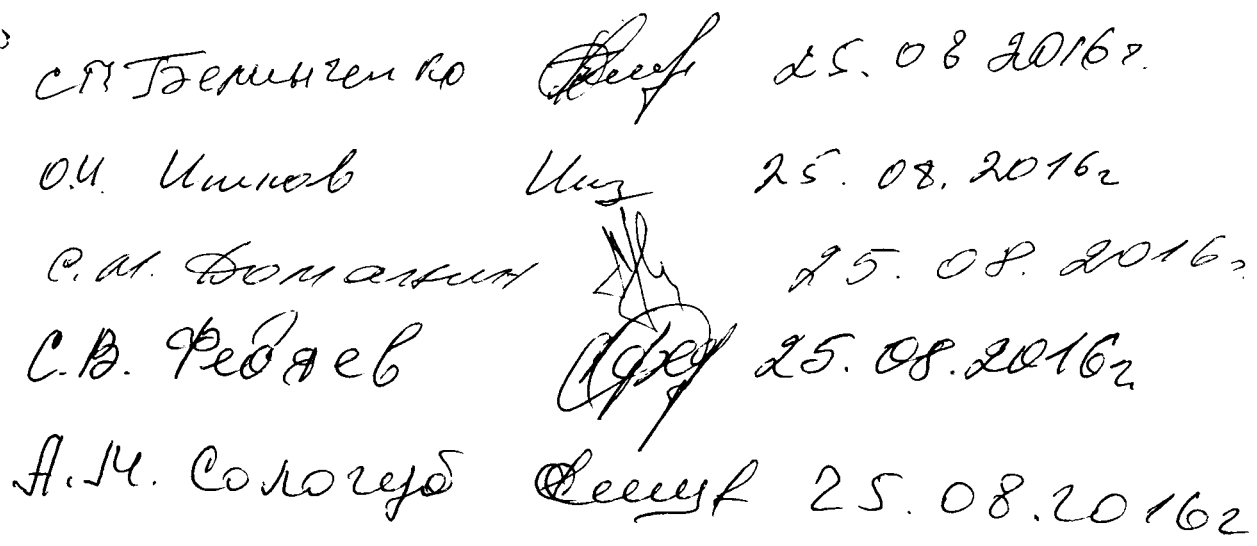 С.П. Белинченко 25.08 2016г.
О.И. Ишков 25.08.2016г
С.М. Домашин 25.08.2016г
С.В. Федяев 25.08.2016г
А.М. Сологуб 25.08.2016г